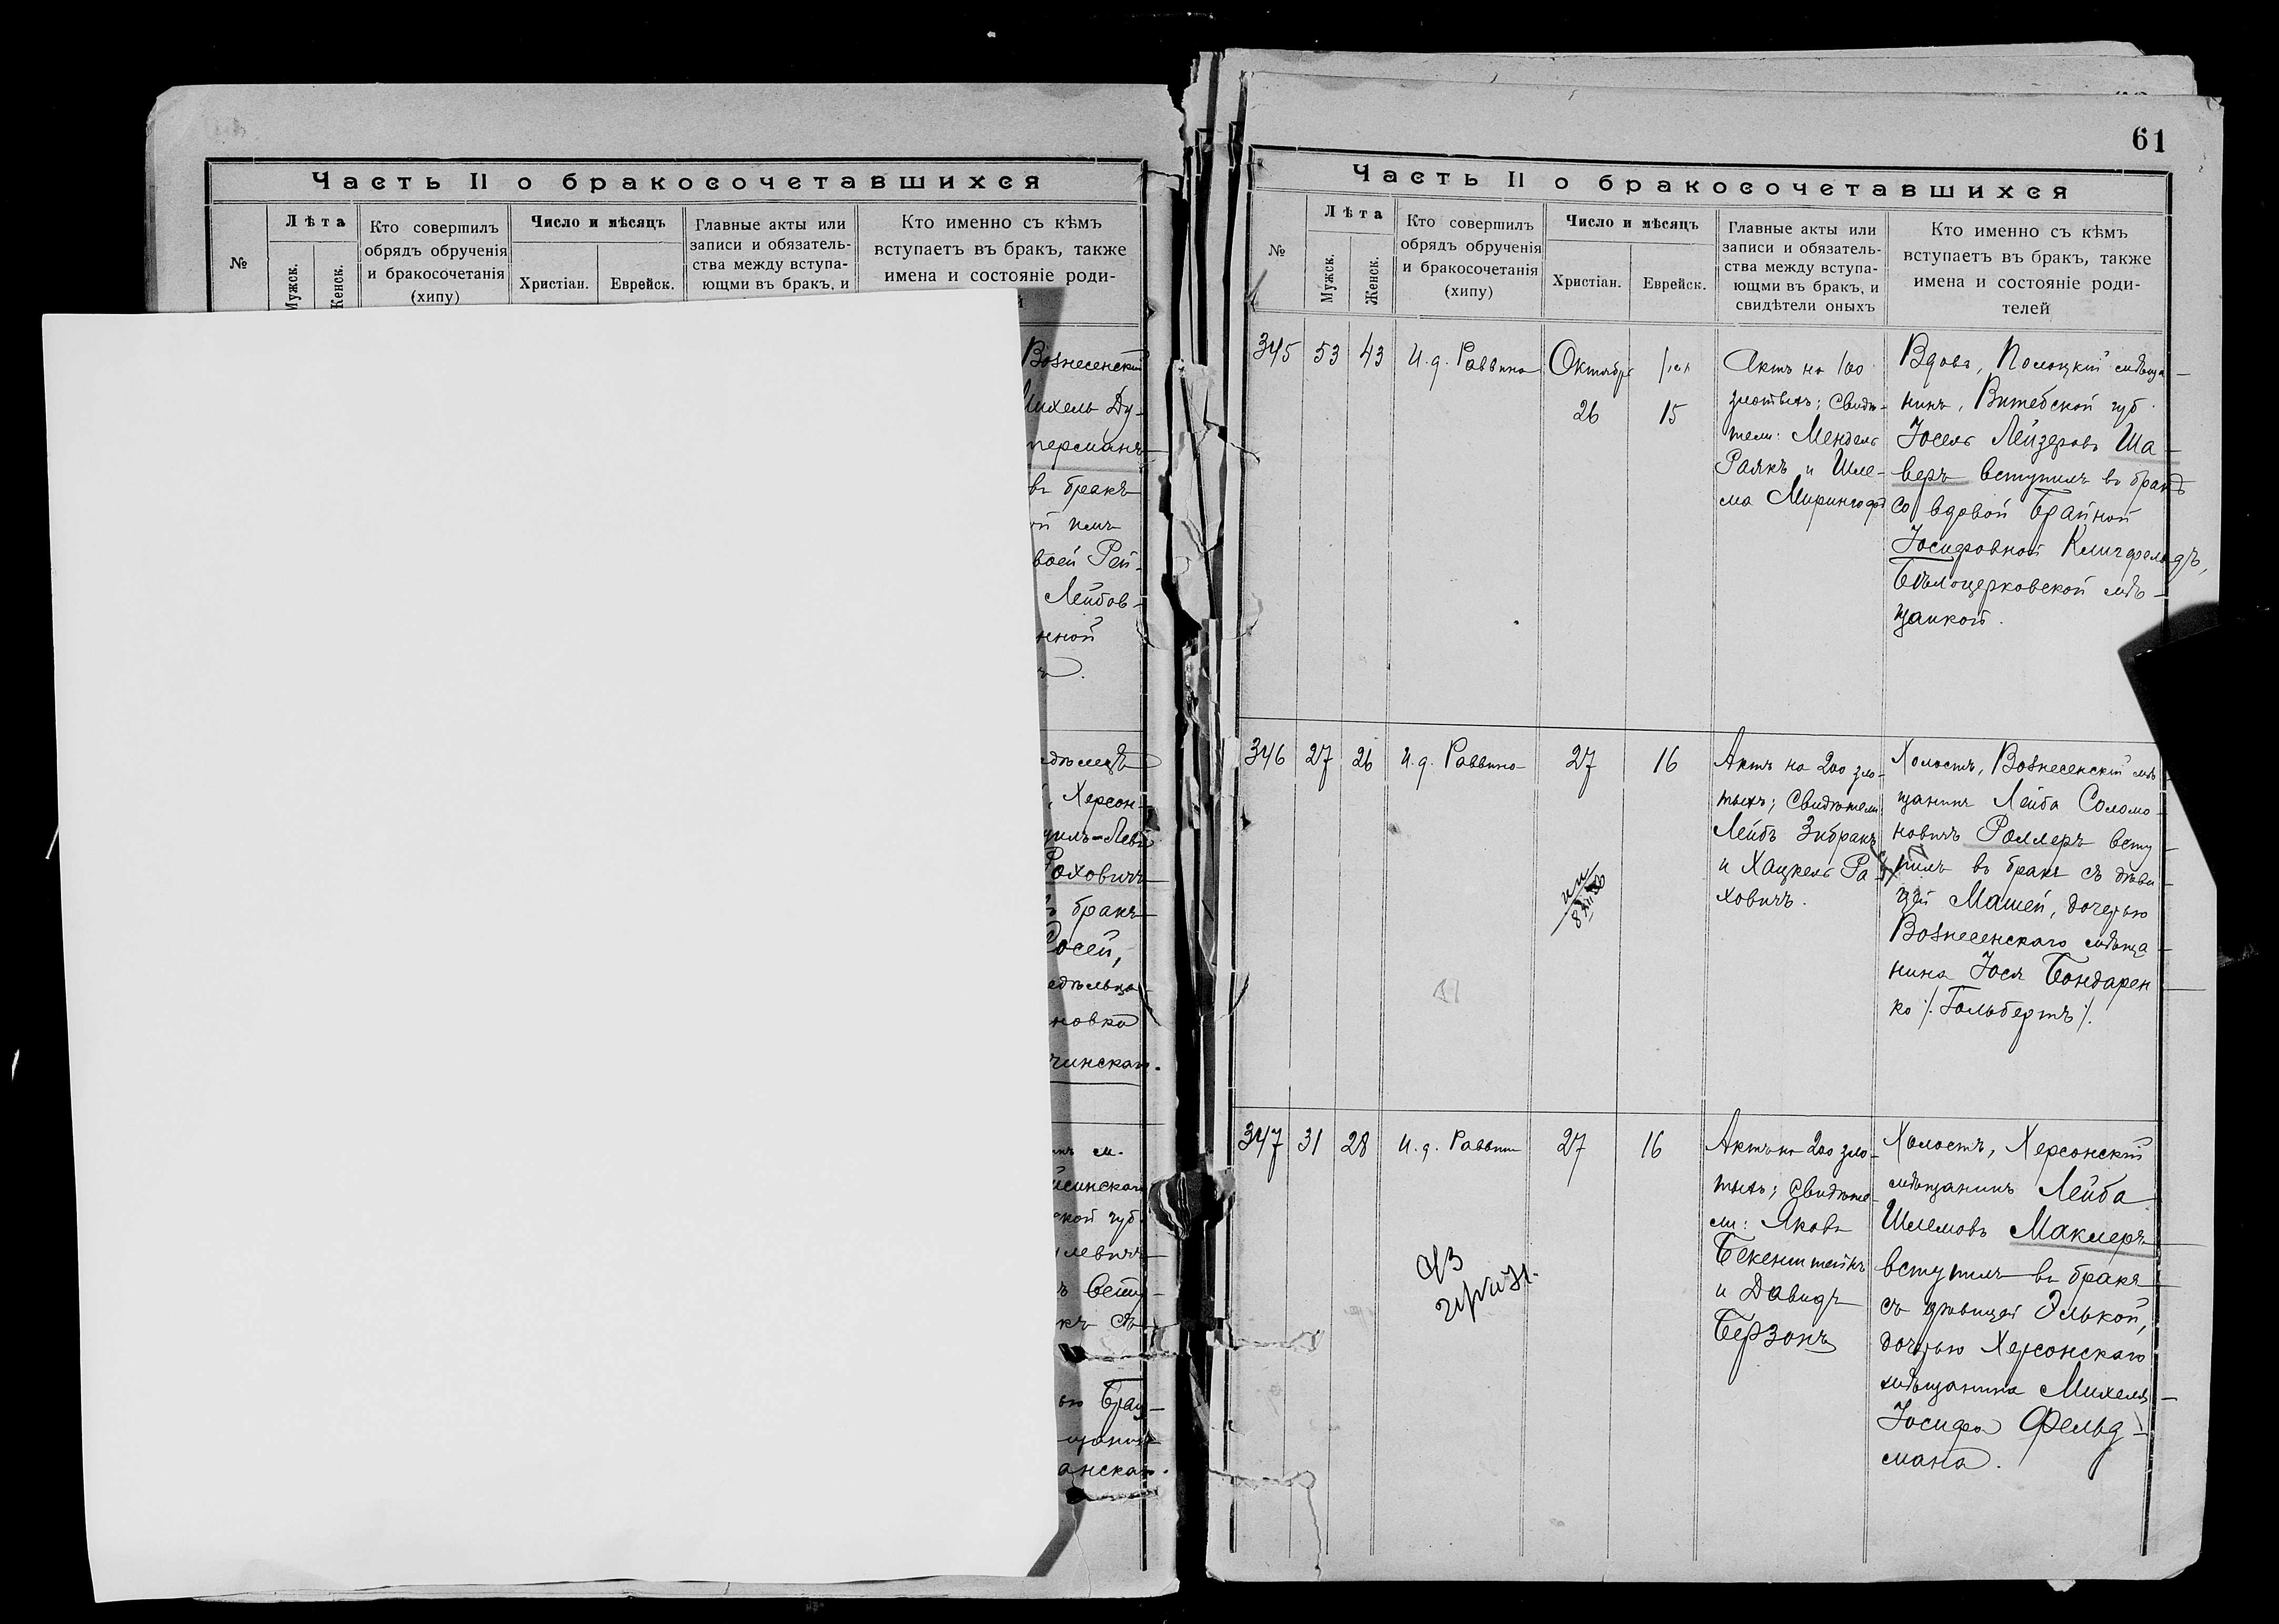 Часть II о бракосочетавшихся
№
Лѣта
Мужск.
Женск.
Кто совершилъ
обрядъ обрученія
и бракосочетанія
(хипу)
Число и мѣсяцъ
Христіан.
Еврейск.
Главные акты или
записи и обязатель-
ства между вступа-
ющми въ бракъ, и
Кто именно съ кѣмъ
вступаетъ въ бракъ, также
имена и состояніе роди-
Вознесенскій
бракъ
Рей-
Лейбов-
Херсон-
Роховичъ
бракъ
61
Часть II о бракосочетавшихся
№
Лѣта
Мужск.
Женск.
Кто совершилъ
обрядъ обрученія
и бракосочетанія
(хипу)
Число и мѣсяцъ
Христіан.
Еврейск.
Главные акты или
записи и обязатель-
ства между вступа-
ющми въ бракъ, и
свидѣтели оныхъ
Кто именно съ кѣмъ
вступаетъ въ бракъ, также
имена и состояніе роди-
телей
345
53
43
И. д. Раввина
Октября
26
15
Актъ на 100
злотыхъ; Свидѣ-
тели: Мендель
Раякъ и Шле-
ма Мирингофъ
Вдовъ, Полоцкій мѣща-
нинъ, Витебской губ.
Іосель Лейзеровъ Ша-
веръ вступилъ въ бракъ
со вдовой Брайной
Іосифовной Клигфельдъ,
Бѣлоцерковской мѣ-
щанкой.
346
27
26
И. д. Раввина
27
16
Актъ на 200 зло-
тыхъ; Свидѣтели
Лейбъ Зибракъ
и Хацкель Ра-
ховичъ.
Холостъ, Вознесенскій мѣ-
щанинъ Лейба Соломо-
новичъ Роллеръ всту-
пилъ въ бракъ съ дѣви-
цей Машей, дочерью
Вознесенскаго мѣща-
нина Іося Бондарен
ко /. Гольбертъ /.
347
31
28
И. д. Раввина
27
16
Актъ на 200 зло-
тыхъ; Свидѣте-
ли: Яковъ
Бекенштейнъ
и Давидъ
Берзонъ
Холостъ, Херсонскій
мѣщанинъ Лейба
Шлемовъ Маклеръ
вступилъ въ бракъ
съ дѣвицей Элькой,
дочерью Херсонскаго
мѣщанина Михеля-
Іосифа Фельд-
мана.